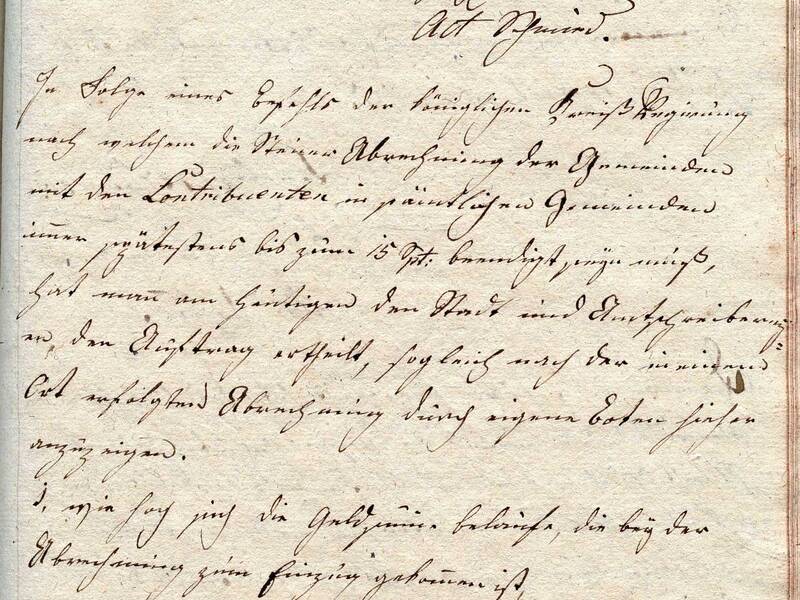 Act Schmid.
In Folge eines Befehls der Königlichen Kreiß Regierung
nach welchem die Steuer Abrechnung der Gemeinden
mit den Contribuenten in sämtlichen Gemeinden
immer spätestens bis zum 15 Spt: beendigt seyn muß,
hat man am Heutigen den Stadt und Amtschreibereÿ=
en den Auftrag ertheilt, sogleich nach der in einem
Ort erfolgten Abrechnung durch eigene Boten hieher
anzuzeigen.
1, wie hoch sich die Geldsumme belaufe, die bey der
Abrechnung zum Einzug gekommen ist,